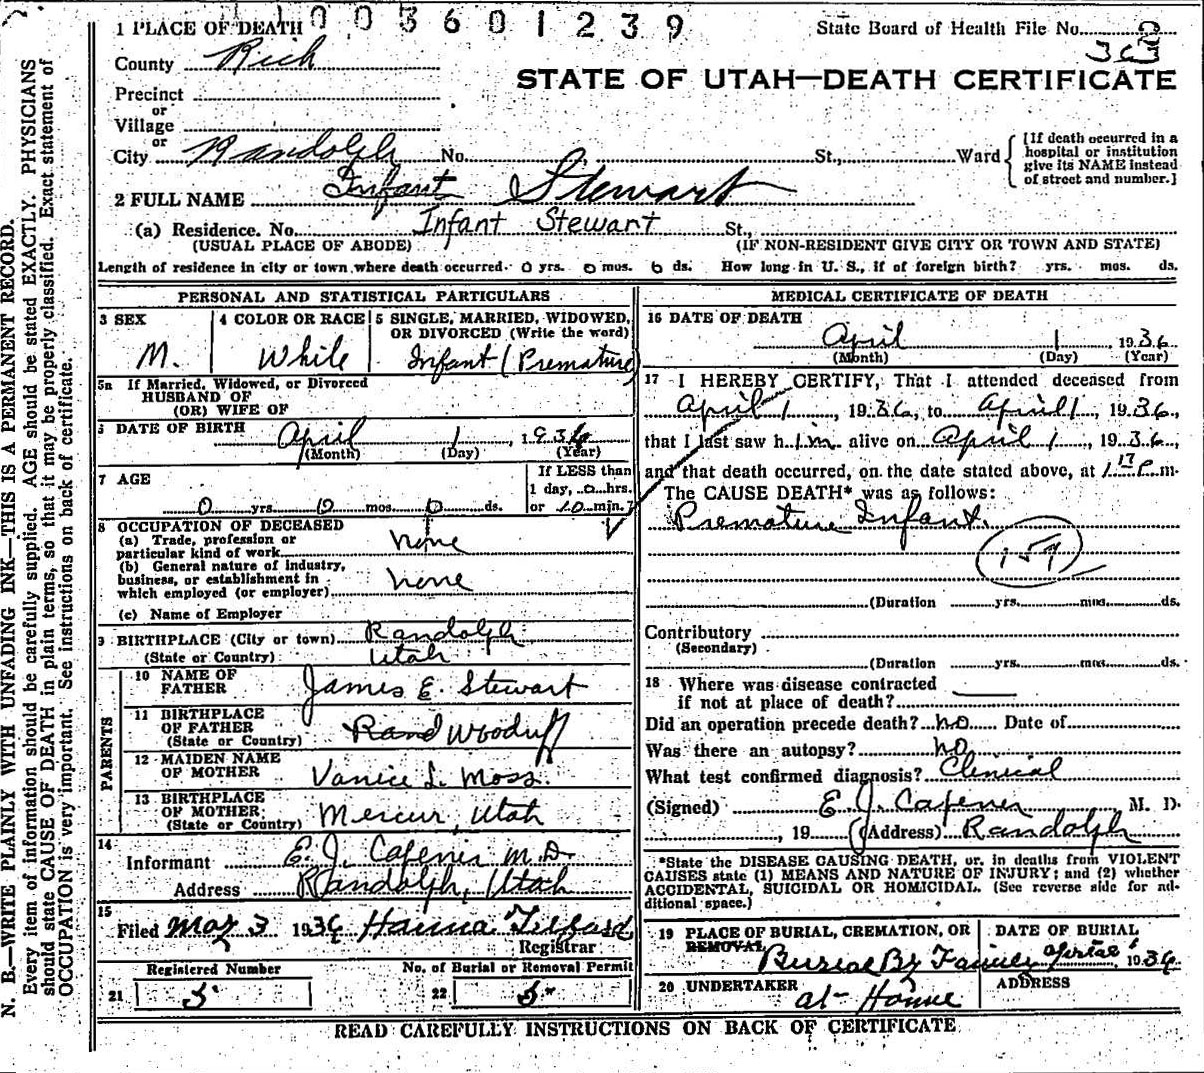 1003601239
1 PLACE OF DEATH
State Board of Health File No.
County Rich
STATE OF UTAH—DEATH CERTIFICATE
Precinct
or
Village
or
City Randolph No. St., Ward
[If death occurred in a
hospital or institution
give its NAME instead
of street and number.]
2 FULL NAME Infant Stewart
(a) Residence. No. Infant Stewart St.,
(USUAL PLACE OF ABODE) (IF NON-RESIDENT GIVE CITY OR TOWN AND STATE)
Length of residence in city or town where death occurred. 0 yrs. 0 mos. 0 ds. How long in U. S., if of foreign birth? yrs. mos. ds.
PERSONAL AND STATISTICAL PARTICULARS
3 SEX
M.
4 COLOR OR RACE
White
5 SINGLE, MARRIED, WIDOWED,
OR DIVORCED (Write the word)
Infant (Premature)
5a If Married, Widowed, or Divorced
HUSBAND OF
(OR) WIFE OF
DATE OF BIRTH April 1, 1936
(Month) (Day) (Year)
7 AGE
0 yrs. 0 mos. 0 ds.
If LESS than
1 day, 0 hrs.
or 10 min.?
8 OCCUPATION OF DECEASED
(a) Trade, profession or
particular kind of work none
(b) General nature of industry,
business, or establishment in
which employed (or employer) none
(c) Name of Employer
9 BIRTHPLACE (City or town) Randolph
(State or Country) Utah
PARENTS
10 NAME OF
FATHER James E. Stewart
11 BIRTHPLACE
OF FATHER Rand Woodruff
(State or Country)
12 MAIDEN NAME
OF MOTHER Vanice L. Moss.
13 BIRTHPLACE
OF MOTHER Mercur, Utah
(State or Country)
14
Informant E. J. Capener M.D.
Address Randolph, Utah
15
Filed May 3 1936 Hanna
Registrar
Registered Number
21 5
No. of Burial or Removal Permit
22 5
MEDICAL CERTIFICATE OF DEATH
16 DATE OF DEATH
April 1 1936
(Month) (Day) (Year)
17 I HEREBY CERTIFY, That I attended deceased from
April 1, 1936, to April 1, 1936,
that I last saw him alive on April 1, 1936,
and that death occurred, on the date stated above, at 1 17 P.m.
The CAUSE DEATH* was as follows:
Premature Infant.
159
(Duration yrs. mos. ds.
Contributory
(Secondary)
(Duration yrs. mos. ds.
18 Where was disease contracted
if not at place of death?
Did an operation precede death? no Date of
Was there an autopsy? no
What test confirmed diagnosis? Clinical
(Signed) E. J. Capener M. D.
, 19 (Address) Randolph
*State the DISEASE CAUSING DEATH, or, in deaths from VIOLENT
CAUSES state (1) MEANS AND NATURE OF INJURY; and (2) whether
ACCIDENTAL, SUICIDAL OR HOMICIDAL. (See reverse side for ad-
ditional space.)
19 PLACE OF BURIAL, CREMATION, OR
REMOVAL
Burial By Family
DATE OF BURIAL
April 1 1936
20 UNDERTAKER
at Home
ADDRESS
READ CAREFULLY INSTRUCTIONS ON BACK OF CERTIFICATE
N. B.—WRITE PLAINLY WITH UNFADING INK—THIS IS A PERMANENT RECORD.
Every item of information should be carefully supplied. AGE should be stated EXACTLY. PHYSICIANS
should state CAUSE OF DEATH in plain terms, so that it may be properly classified. Exact statement of
OCCUPATION is very important. See instructions on back of certificate.